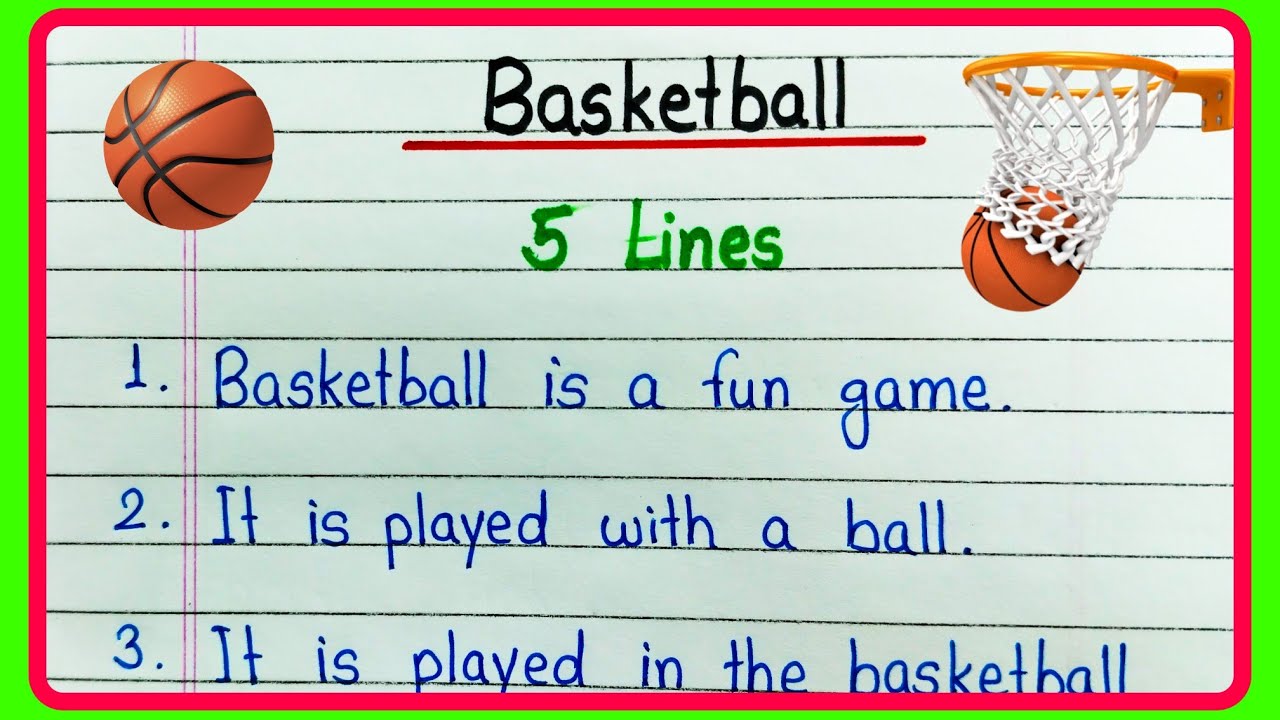 Basketball
5 Lines
1. Basketball is a fun game.
2. It is played with a ball.
3. It is played in the basketball